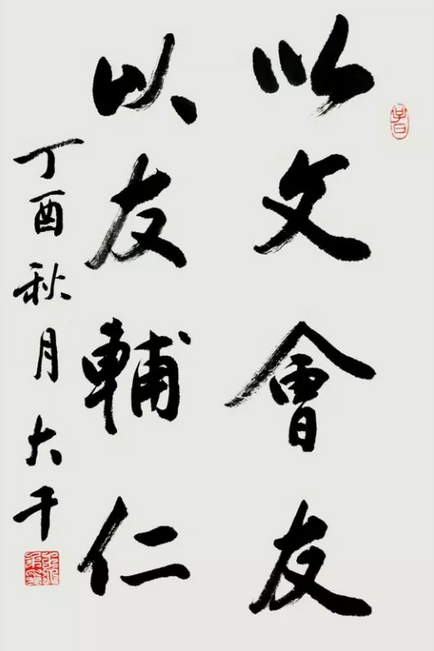 以文會友
以友輔仁
丁酉秋月大千
子曰